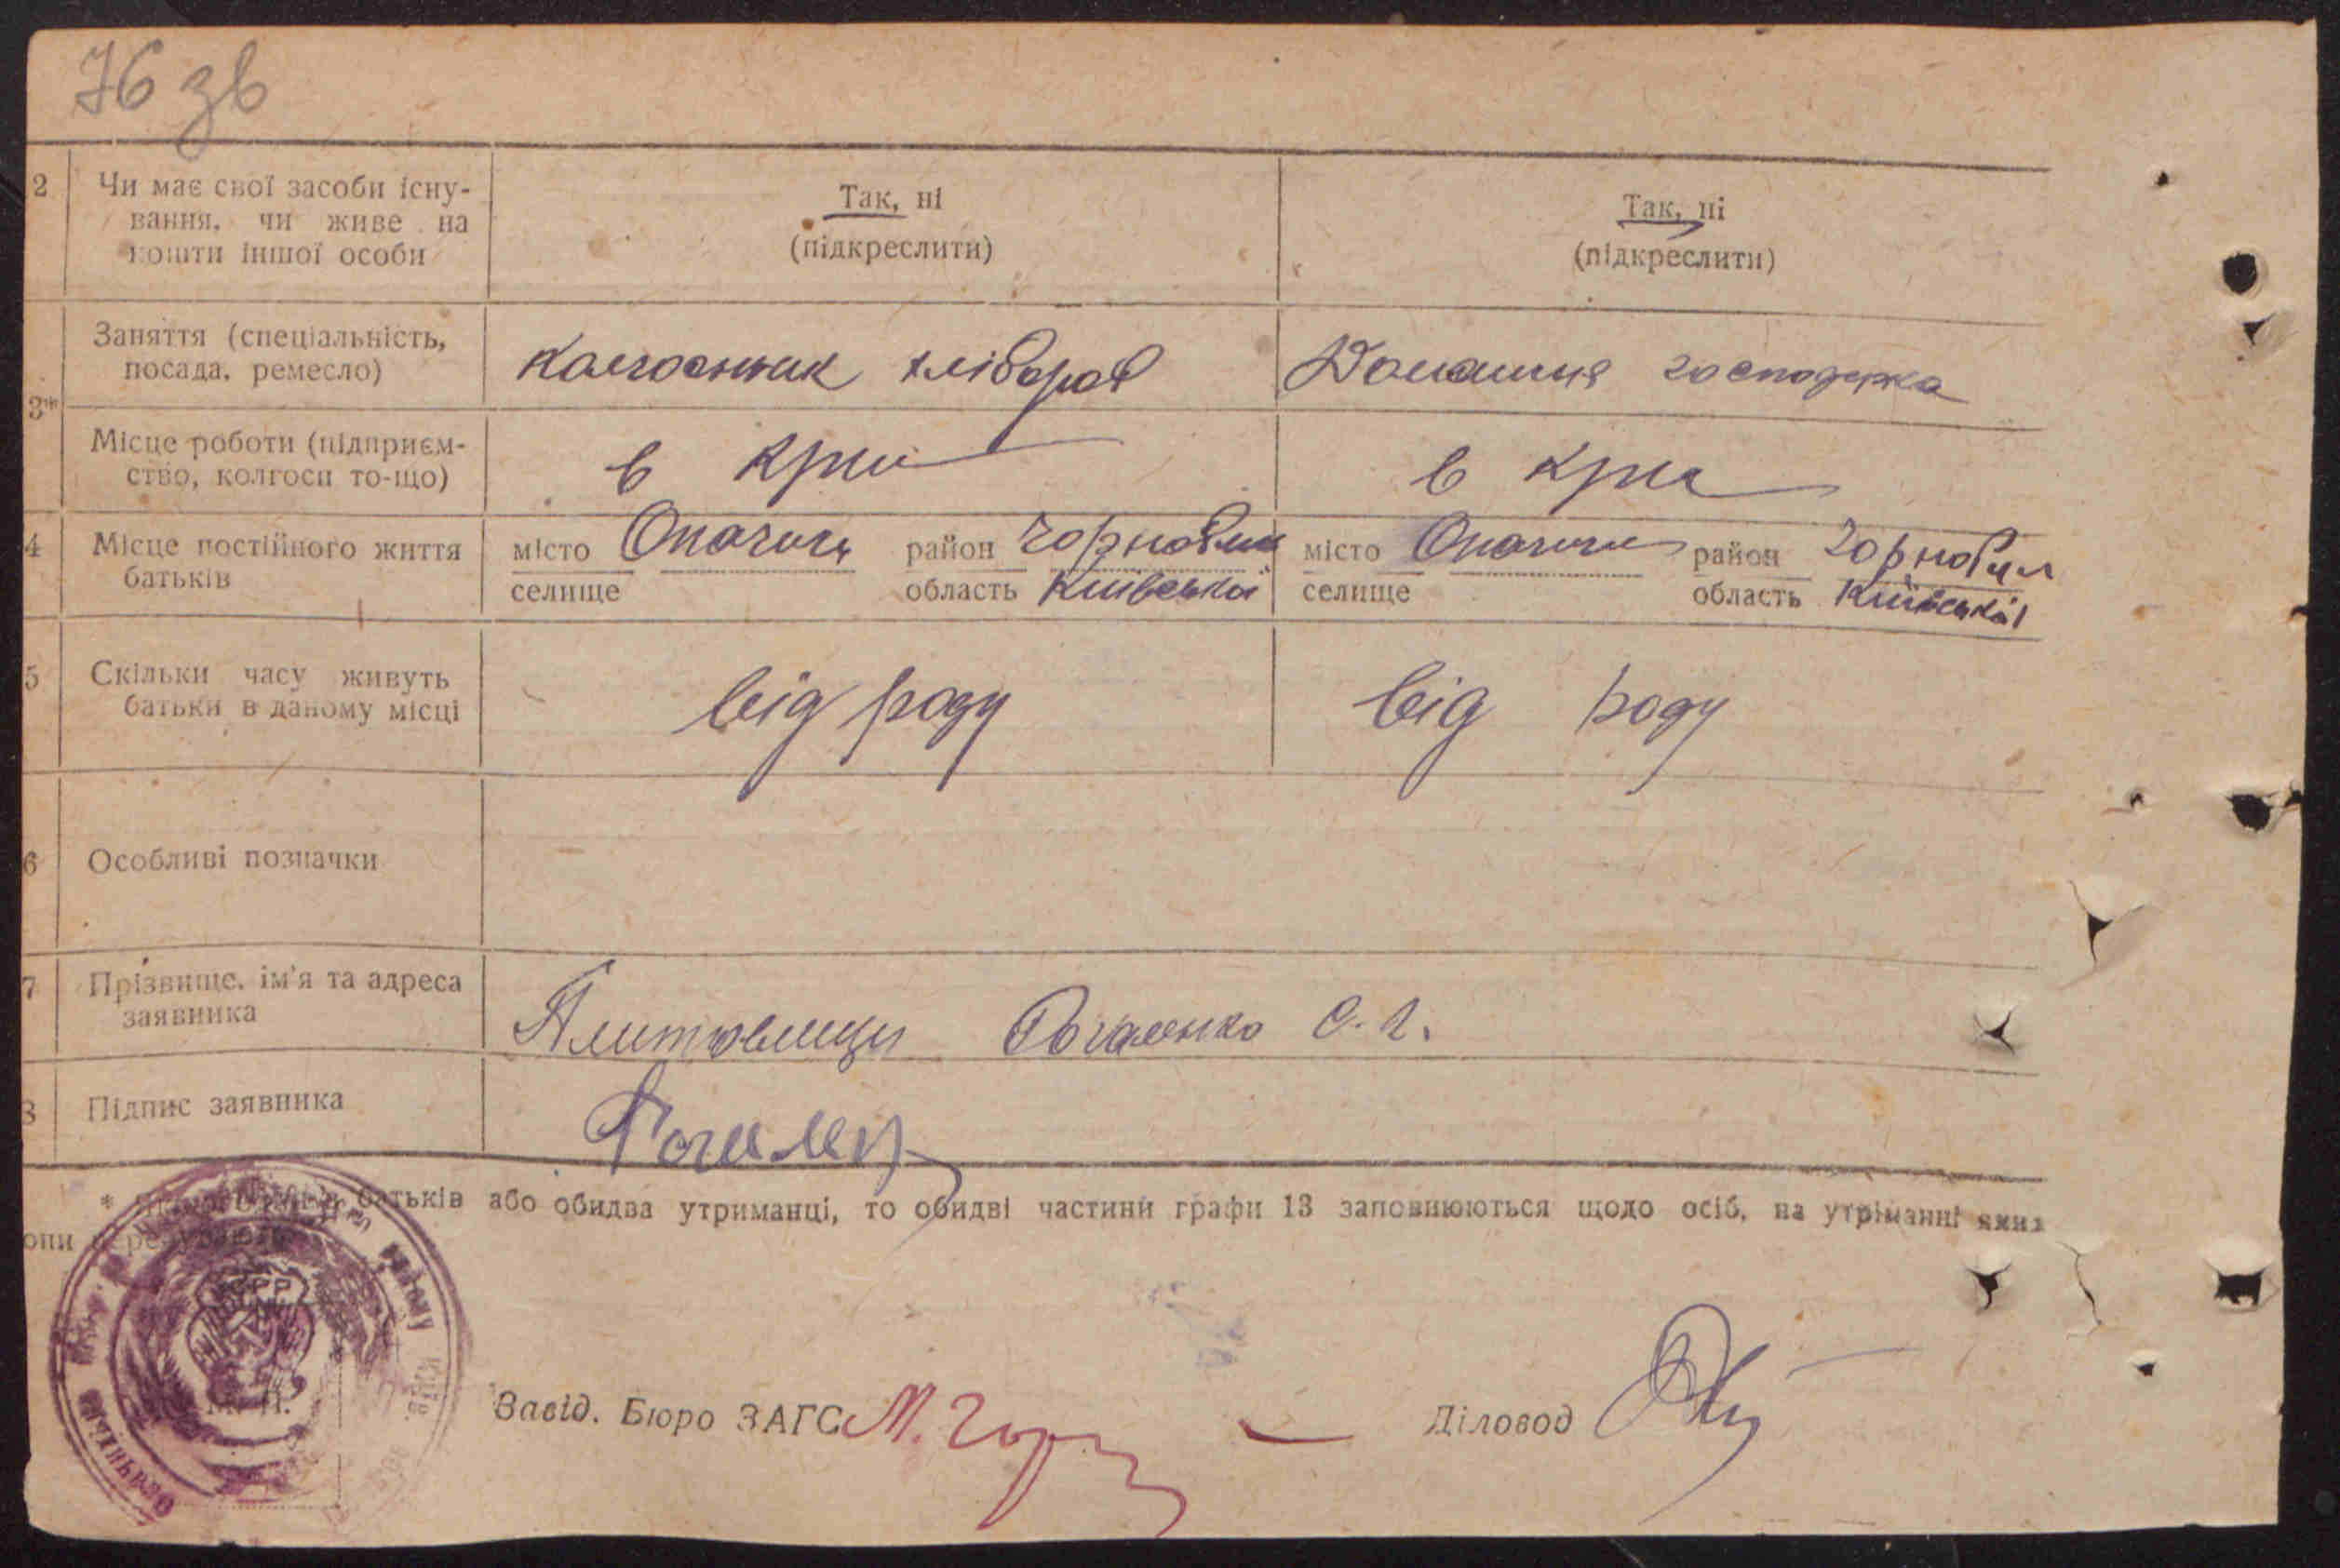 76 зв
2 Чи має свої засоби існу- Так, ні Так, ні
вання, чи живе на (підкреслити) (підкреслити)
кошти іншої особи
Заняття (спеціальність, колгоспник хлібороб Домашня господарка
посада, ремесло)
3*
Місце роботи (підприєм- в
ство, колгосп то-що) в
4 Місце постійного життя місто Опачичі район Чорнобил місто Опачичі район Чорнобил
батьків селище область Київської селище область Київської
5 Скільки часу живуть від роду від роду
батьки в даному місці
6 Особливі позначки
7 Прізвище, ім'я та адреса
заявника Плитовищи Рогаленко С. І.
8 Підпис заявника
* батьків або обидва утриманці, то обидві частини графи 13 заповнюються щодо осіб, на утріманні яких
вони перебувають
УСРР
М. П.
Завід. Бюро ЗАГС М. Діловод